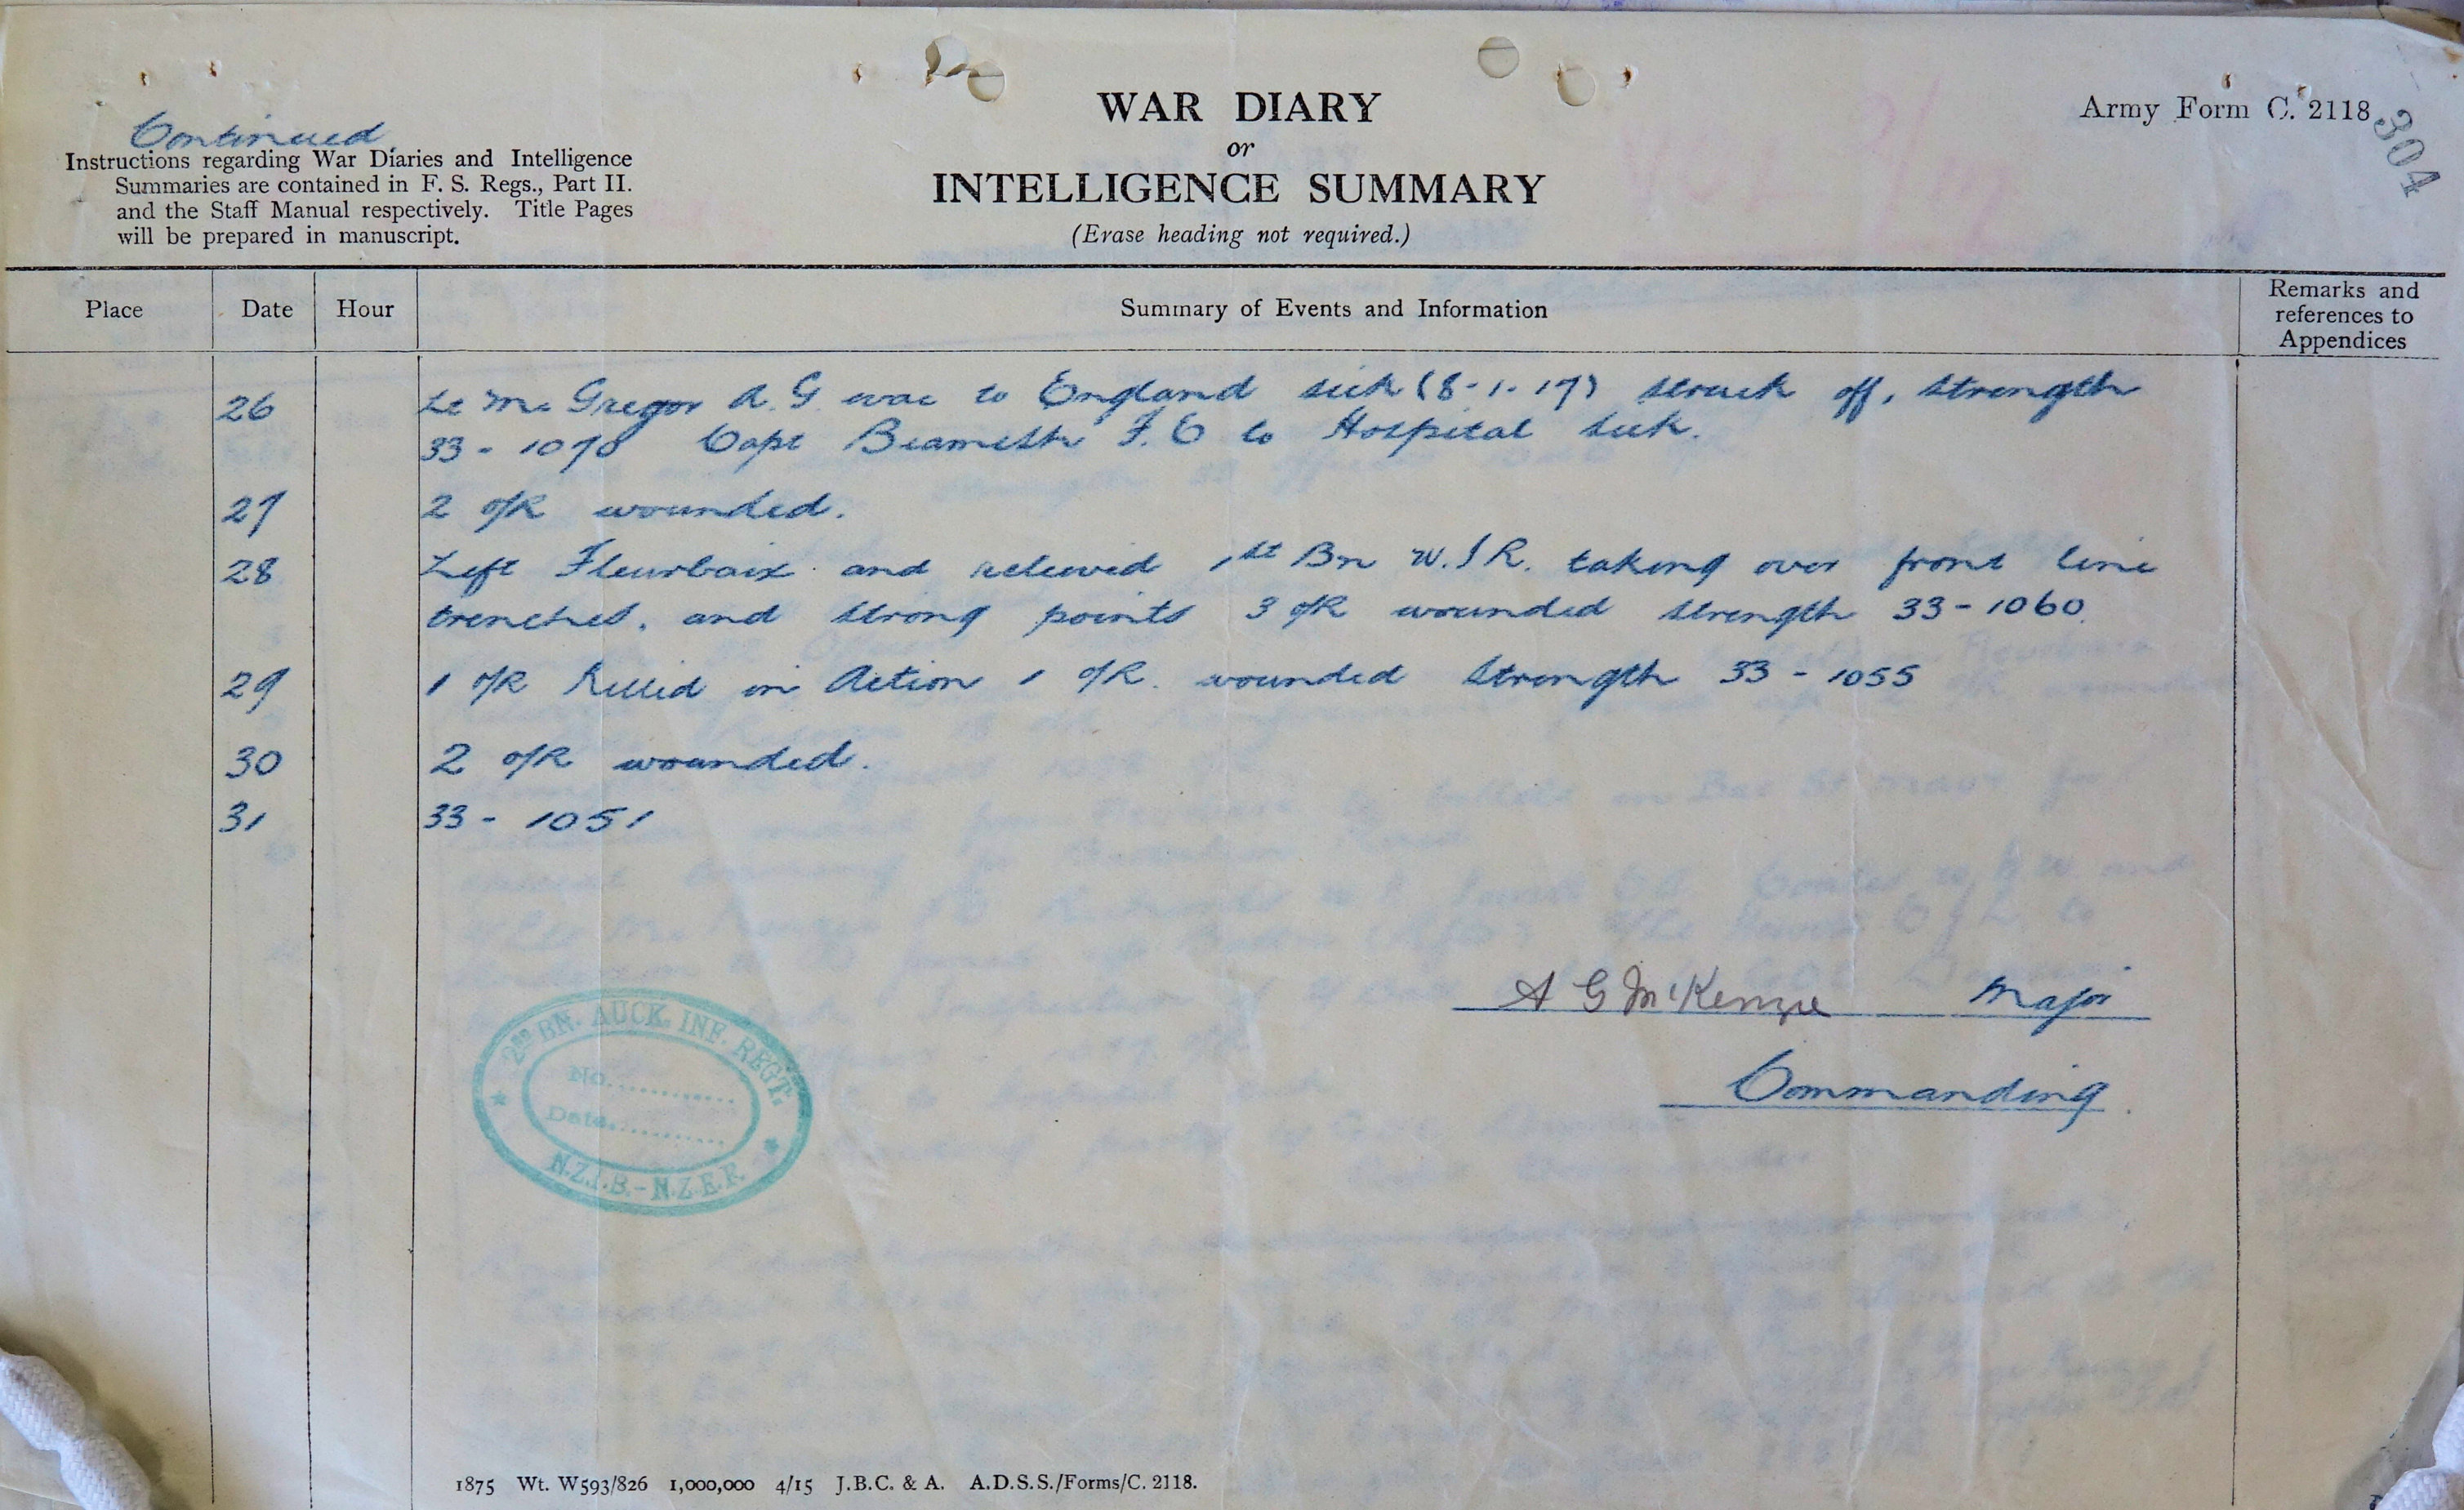 Continued
Instructions regarding War Diaries and Intelligence
Summaries are contained in F. S. Regs., Part II.
and the Staff Manual respectively. Title Pages
will be prepared in manuscript.
WAR DIARY
or
INTELLIGENCE SUMMARY
(Erase heading not required.)
Army Form C. 2118
304
Place Date Hour Summary of Events and Information Remarks and
references to
Appendices
26 Lt McGregor A. G. evac to England sick (8-1-17) struck off, strength
33 - 1070 Capt Beamish F. C to Hospital sick.
27 2 O/R wounded.
28 Left Fleurbaix and relieved 1st Bn W.I.R. taking over front line
trenches, and strong points 3 O/R wounded strength 33 - 1060.
29 1 O/R Killed in Action 1 O/R. wounded Strength 33 - 1055
30 2 O/R wounded.
31 33 - 1051
A G McKenzie Major
Commanding.
2ND BN. AUCK. INF. REGT.
No............
Date............
N.Z.I.B. - N.Z.E.F.
1875 Wt. W593/826 1,000,000 4/15 J.B.C. & A. A.D.S.S./Forms/C. 2118.